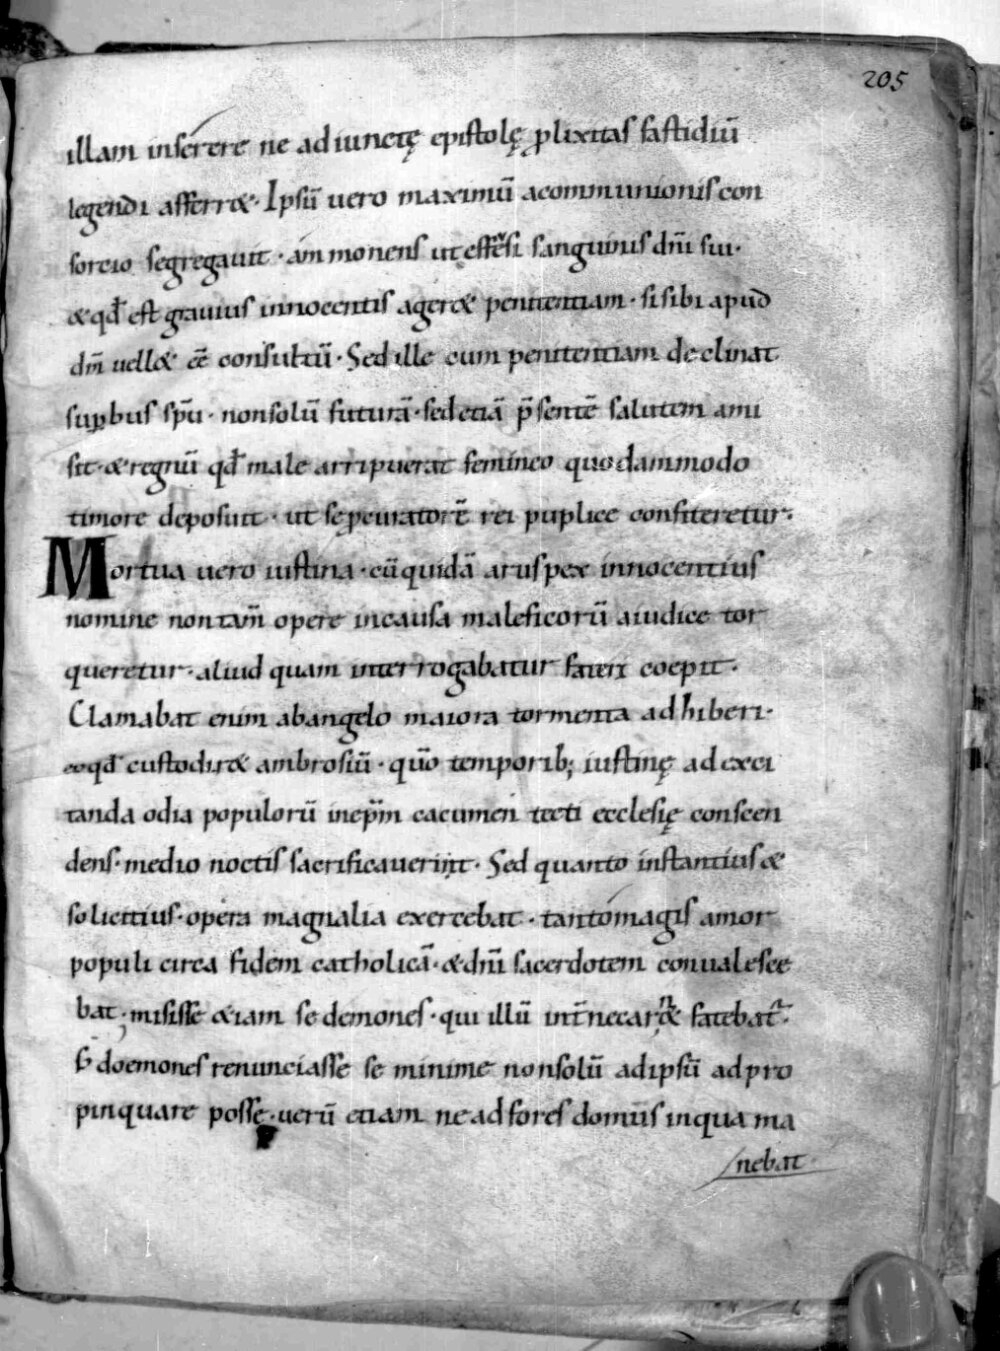 205
illam inserere ne adiunctę epistolę p̱lixitas fastidiū
legendi afferr&. Ipsū uero maximū acommunionis con
sorcio segregauit · ammonens ut effusi sanguinis dn̄i sui·
& qđ est grauius innocentis ager& penitentiam · si sibi apud
dm̄ uell& eē consultū · Sed ille cum penitentiam declinat
sup̱bus spū · nonsolū futurā · sed etiā p̄sentē salutem ami
sit · & regnū qđ male arripuerat femineo quodammodo
timore deposuit · ut se peuratorē rei puplice confiteretur.
Mortua uero iustina · cū quidā aruspex innocentius
nomine non tam̄ opere incausa maleficorū aiudice tor
queretur · aliud quam interrogabatur fateri coepit ·
Clamabat enim abangelo maiora tormenta adhiberi ·
eo qđ custodir& ambrosiū · qūo temporib; iustinę ad exci
tanda odia populorū cacumen tecti ecclesię conscen
dens · medio noctis sacrificauerint · Sed quanto instantius &
solicitius · opera magnalia exercebat · tantomagis amor
populi circa fidem catholicā · & dn̄i sacerdotem conualesce
bat; misisse &iam se demones · qui illū fatebat᷑ ·
doemones renunciasse se minime nonsolū adipsū adpro
pinquare possę · uerū etiam ne adfores domus inqua ma
nebat